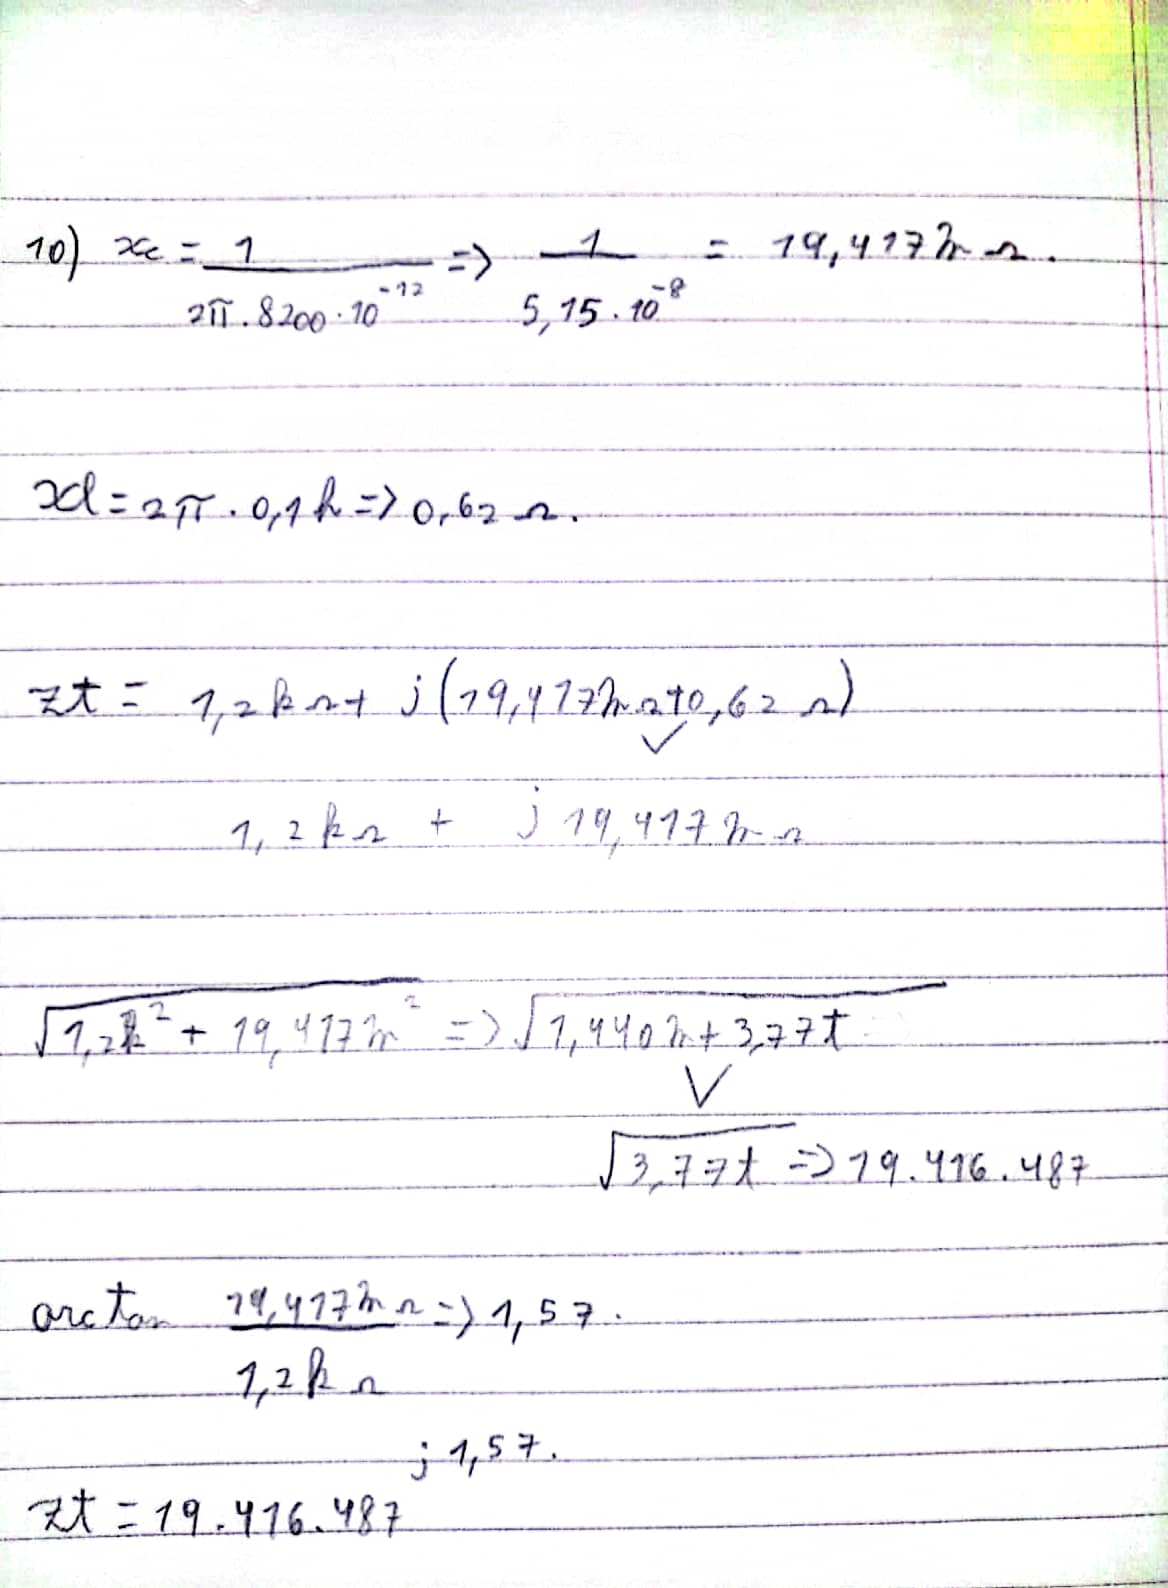 10) xc = 1 / 2π . 8200 . 10⁻¹² => 1 / 5,15 . 10⁻⁸ = 19,417m Ω.
xl = 2π . 0,1h => 0,62 Ω.
zt = 1,2k Ω + j (19,417m Ω + 0,62 Ω)
1,2k Ω + j 19,417m Ω
√1,2k² + 19,417m² => √1,440m + 3,77t
√3,77t => 19.416.487
arctan 19,417m Ω / 1,2k Ω => 1,57.
j 1,57.
zt = 19.416.487